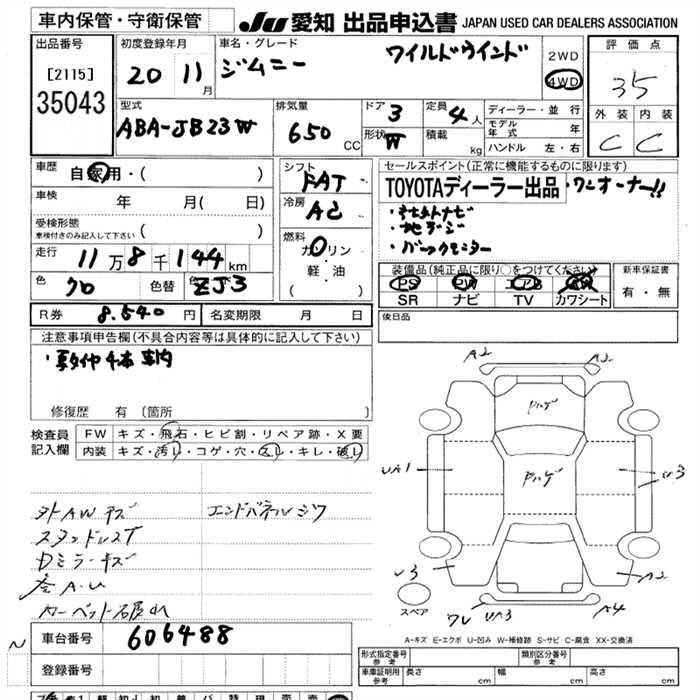 車内保管・守衛保管 JU 愛知 出品申込書 JAPAN USED CAR DEALERS ASSOCIATION
出品番号 初度登録年月 車名・グレード 評価点
[2115] 20 11月 ジムニー ワイルドウインド 2WD 4WD 35
35043
型式 排気量 ドア 3 定員 4人 ディーラー・並行 外装 内装
ABA-JB23W 650 CC 形状 W 積載 kg モデル年式 年 C C
ハンドル 左・右
車歴 自家用・( ) シフト FAT セールスポイント(正常に機能するものに限ります)
車検 年 月( 日) 冷房 AC TOYOTAディーラー出品・ワンオーナー!!
受検形態 ・社外ナビ
車検付きのみ記入して下さい ( ) 燃料 ・地デジ
走行 11万8千144km ガソリン ・バックモニター
軽・油
( )
色 クロ 色替 色 ZJ3 装備品(純正品に限り○をつけてください) 新車保証書
PS PW エアB
SR ナビ TV カワシート 有・無
R券 8.540円 名変期限 月 日 後日品
注意事項申告欄(不具合内容等は具体的に記入して下さい)
・夏タイヤ4本車内
修復歴 有 [箇所 ]
検査員記入欄 FW キズ・飛石・ヒビ割・リペア跡・X要
内装 キズ・汚レ・コゲ・穴・スレ・キレ・破レ
A2 A3
Pハゲ
UA1 Pハゲ U3
外AWキズ エンドパネルシワ
スタッドレスT
Dミラーキズ
A.U
カーペット
U3 A2
スペア UA3 A4
A-キズ E-エクボ U-凹み W-補修跡 S-サビ C-腐食 XX-交換済
車台番号 606488
登録番号
形式指定番号 参考 類別区分番号 参考
車庫証明用 参考 長さ cm 幅 cm 高さ cm